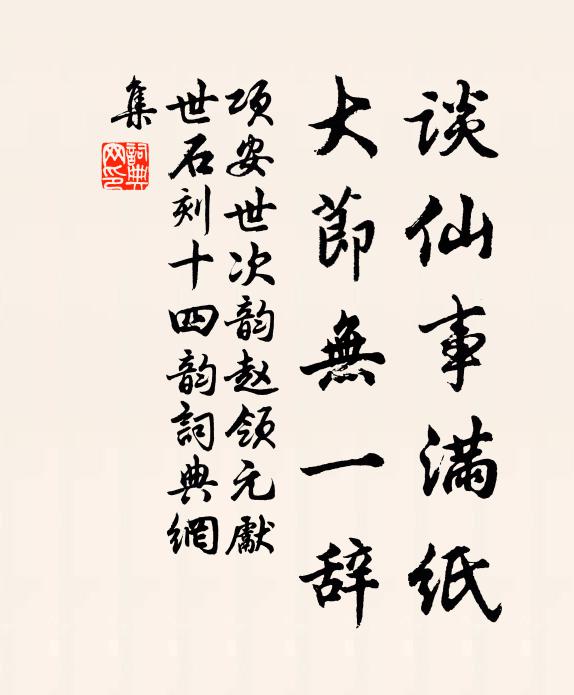 谈仙事满纸
大節無一辞
项安世次韵赵领元獻
世石刻十四韵詞典網
集
詞典網印